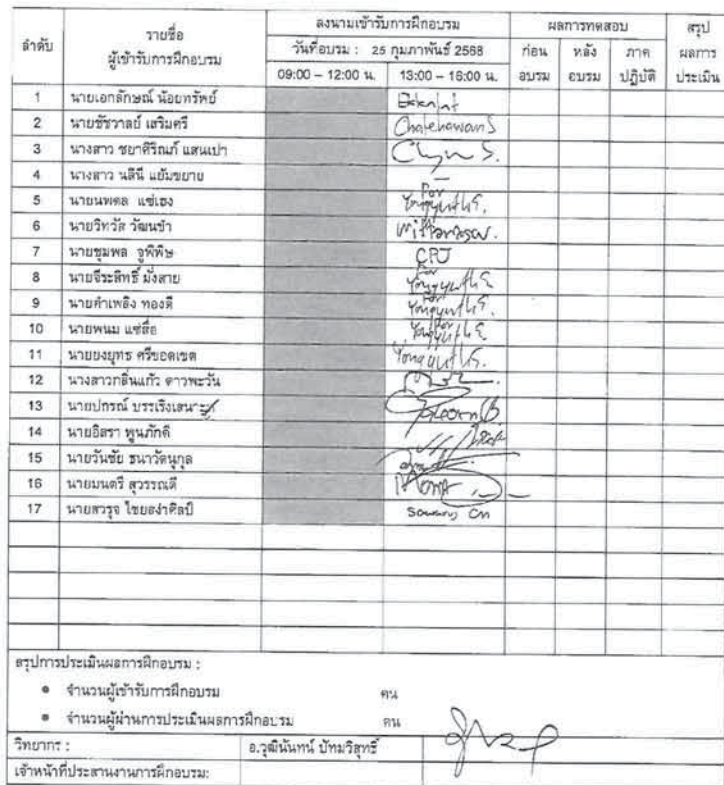 ลำดับ
รายชื่อ
ผู้เข้ารับการฝึกอบรม
ลงนามเข้ารับการฝึกอบรม
ผลการทดสอบ
สรุป
ผลการ
ประเมิน
วันที่อบรม : 25 กุมภาพันธ์ 2568
ก่อน
อบรม
หลัง
อบรม
ภาค
ปฏิบัติ
09:00 – 12:00 น.
13:00 – 16:00 น.
1 นายเอกลักษณ์ น้อยทรัพย์
2 นายชัชวาลย์ เสริมศรี
3 นางสาว ชยาศิริณภ์ แสนเปา
4 นางสาว นลินี แย้มขยาย –
5 นายนพดล แซ่เฮง For Yongyuth S.
6 นายวิทวัส วัฒนขำ
7 นายชุมพล จูพิพิษ CPJ
8 นายจีระสิทธิ์ มั่งสาย For Yongyuth S
9 นายคำเพลิง ทองดี For Yongyuth S.
10 นายพนม แซ่สื่อ For Yongyuth S
11 นายยงยุทธ ศรีขอดเขต Yongyuth S.
12 นางสาวกลิ่นแก้ว ดาวพะวัน
13 นายปกรณ์ บรรเริงเสนาะ
14 นายอิสรา พูนภักดี
15 นายวันชัย ธนาวัตนุกุล
16 นายมนตรี สุวรรณดี
17 นายสวรุจ ไชยสง่าศิลป์
สรุปการประเมินผลการฝึกอบรม :
• จำนวนผู้เข้ารับการฝึกอบรม คน
• จำนวนผู้ผ่านการประเมินผลการฝึกอบรม คน
วิทยากร : อ.วุฒินันทน์ ปัทมวิสุทธิ์
เจ้าหน้าที่ประสานงานการฝึกอบรม: